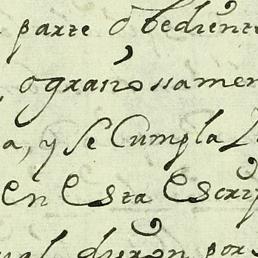 parte obediente
ograviossamen
a, y se Cumpla L
En Esta Escrip
dieron por